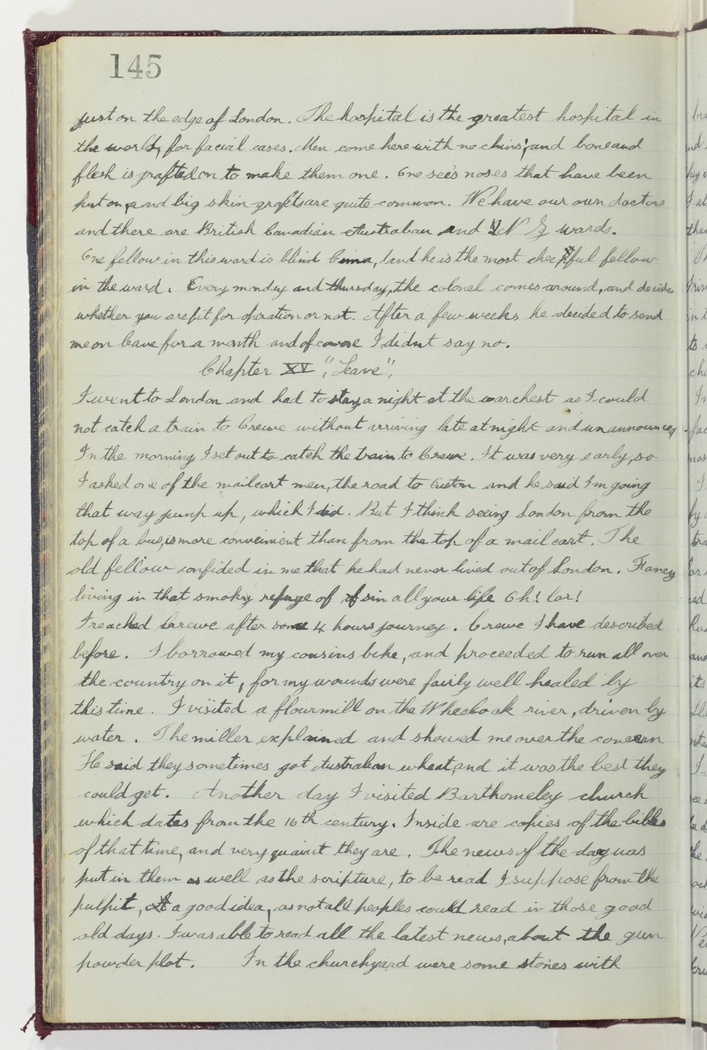 145
just on the edge of London. The hospital is the greatest hospital in
the world, for facial cases. Men come here with no chins, and bone and
flesh is grafted on to make them one. One sees noses that have been
put on, and big skin grafts are quite common. We have our own doctors
and there are British Canadian Australian and N Z wards.
One fellow in this ward is blind, and he is the most cheerful fellow
in the ward. Every monday and thursday, the colonel comes around, and decides
whether you are fit for operation or not. After a few weeks he decided to send
me on leave for a month and of course I didnt say no.
Chapter XV "Leave".
I went to London and had to stay a night at the warchest as I could
not catch a train to Crewe without arriving late at night and unannounced
In the morning I set out to catch the train to Crewe. It was very early, so
I asked one of the mailcart men, the road to Euston and he said I'm going
that way jump up, which I did. But I think seeing London from the
top of a bus, is more convenient than from the top of a mail cart. The
old fellow confided in me that he had never lived out of London. Fancy
living in that smoky refuge of sin all your life Oh! Lor!
I reached Crewe after some 4 hours journey. Crewe I have described
before. I borrowed my cousins bike, and proceeded to run all over
the country on it, for my wounds were fairly well healed by
this time. I visited a flourmill on the Wheelock river, driven by
water. The miller explained and showed me over the concern
He said they sometimes got Australian wheat, and it was the best they
could get. Another day I visited Barthomeley church
which dates from the 16th century. Inside are copies of the bibles
of that time, and very quaint they are. The news of the day was
put in them as well as the scripture, to be read I suppose from the
pulpit, a good idea, as not all peoples could read in those good
old days. I was able to read all the latest news, about the gun
powder plot. In the churchyard were some stones with